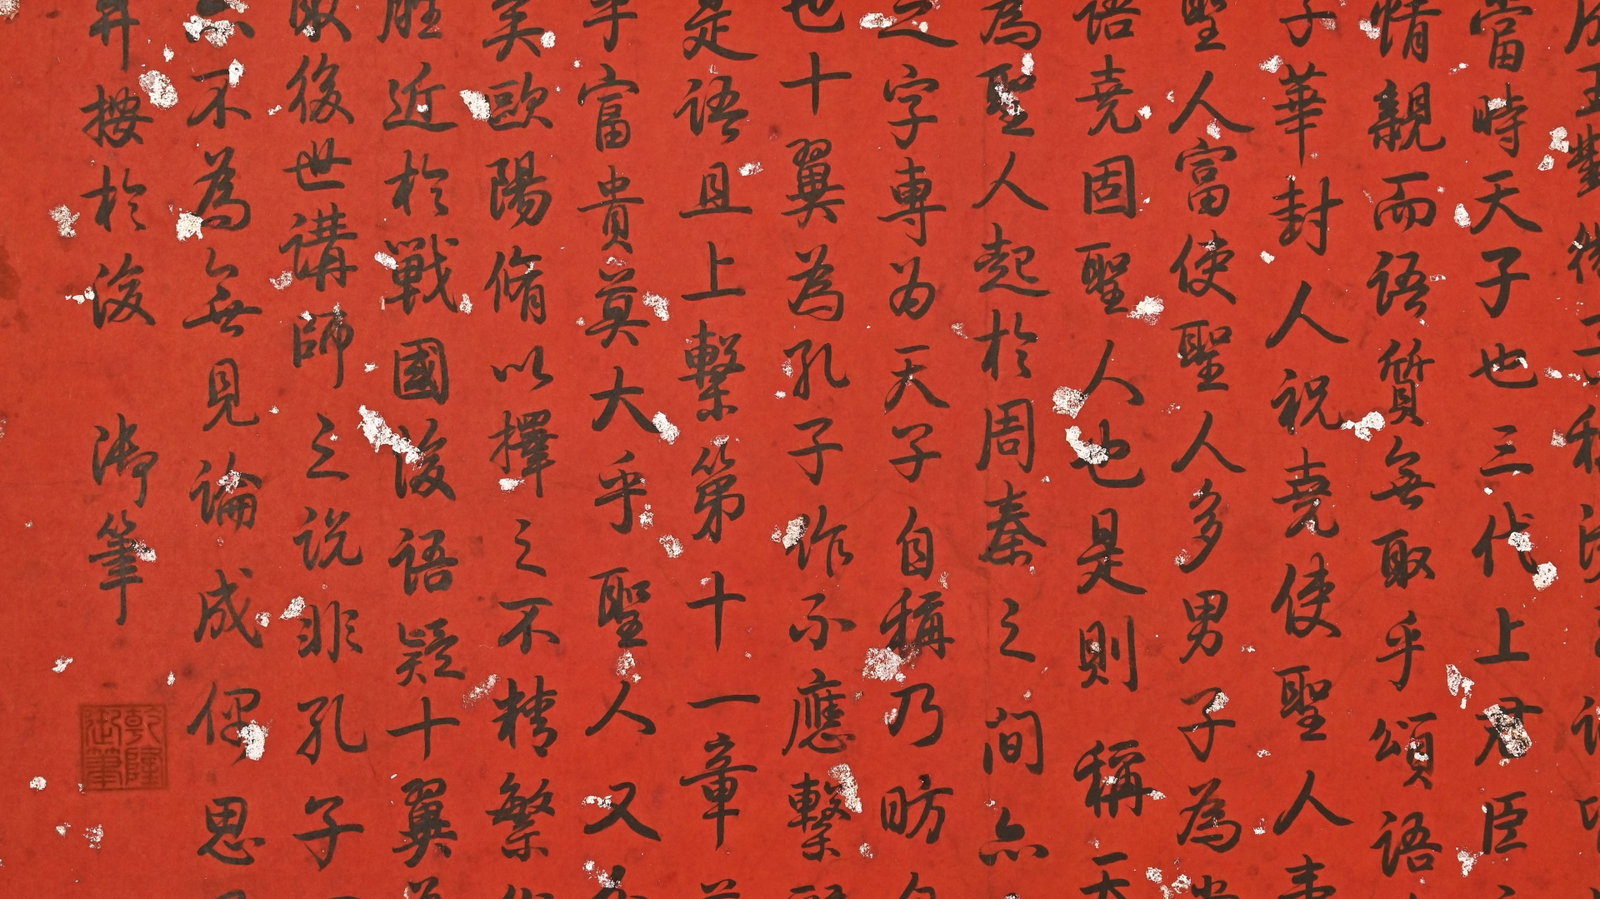 成王
當時天子也三代上君臣
情親而語質無取乎頌語
子華封人祝堯使聖人壽
聖人富使聖人多男子為
語堯固聖人也是則稱天
為聖人起於周秦之間亦
之字專为天子自稱乃昉自
也十翼為孔子作不應繫
是語且上繫第十一章
乎富貴莫大乎聖人又
美歐陽脩以擇之不精繁
近於戰國後語疑十翼
取後世講師之说非孔子
不為無見論成偶思
昇按於後 御筆
乾隆御筆